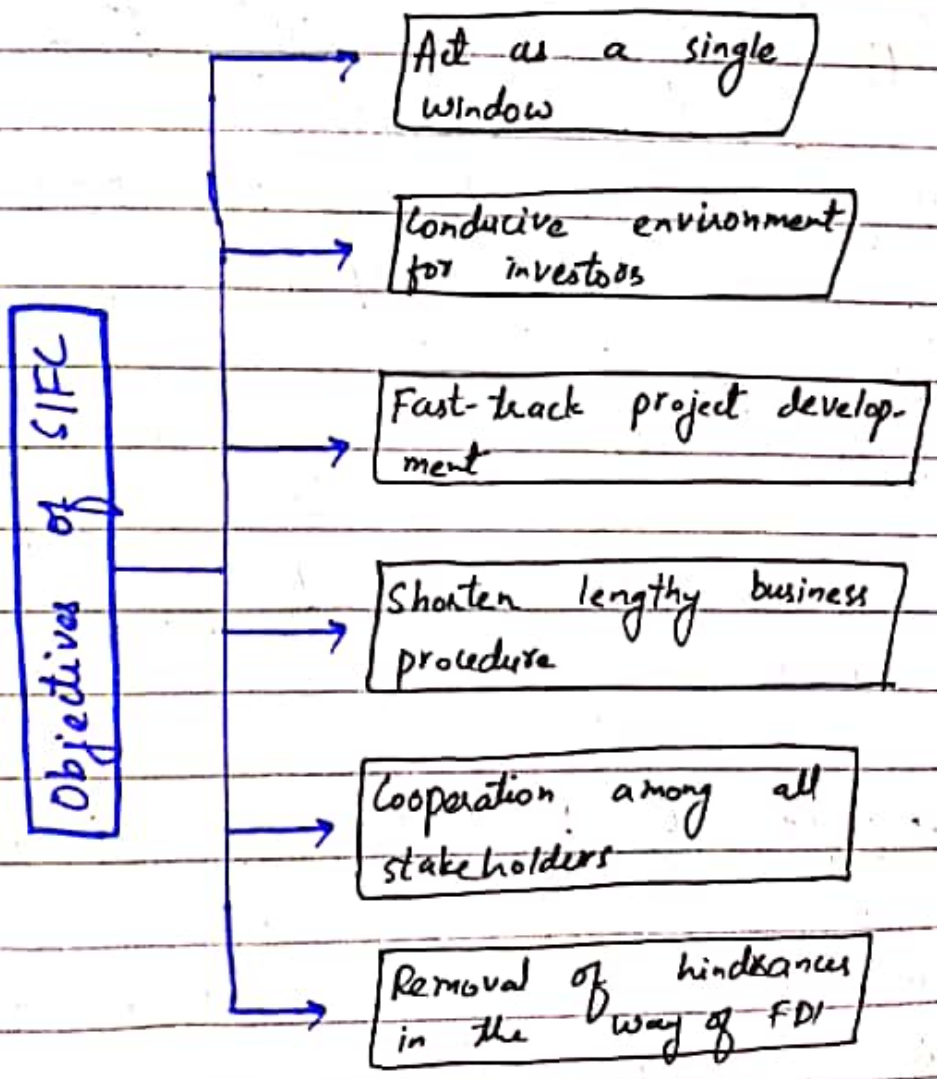 Objectives of SIFC
Act as a single
window
Conducive environment
for investors
Fast-track project develop-
ment
Shorten lengthy business
procedure
Cooperation among all
stakeholders
Removal of hindrances
in the way of FDI